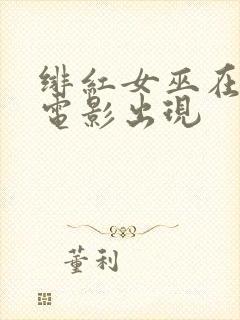 緋紅女巫在
電影出現
董利